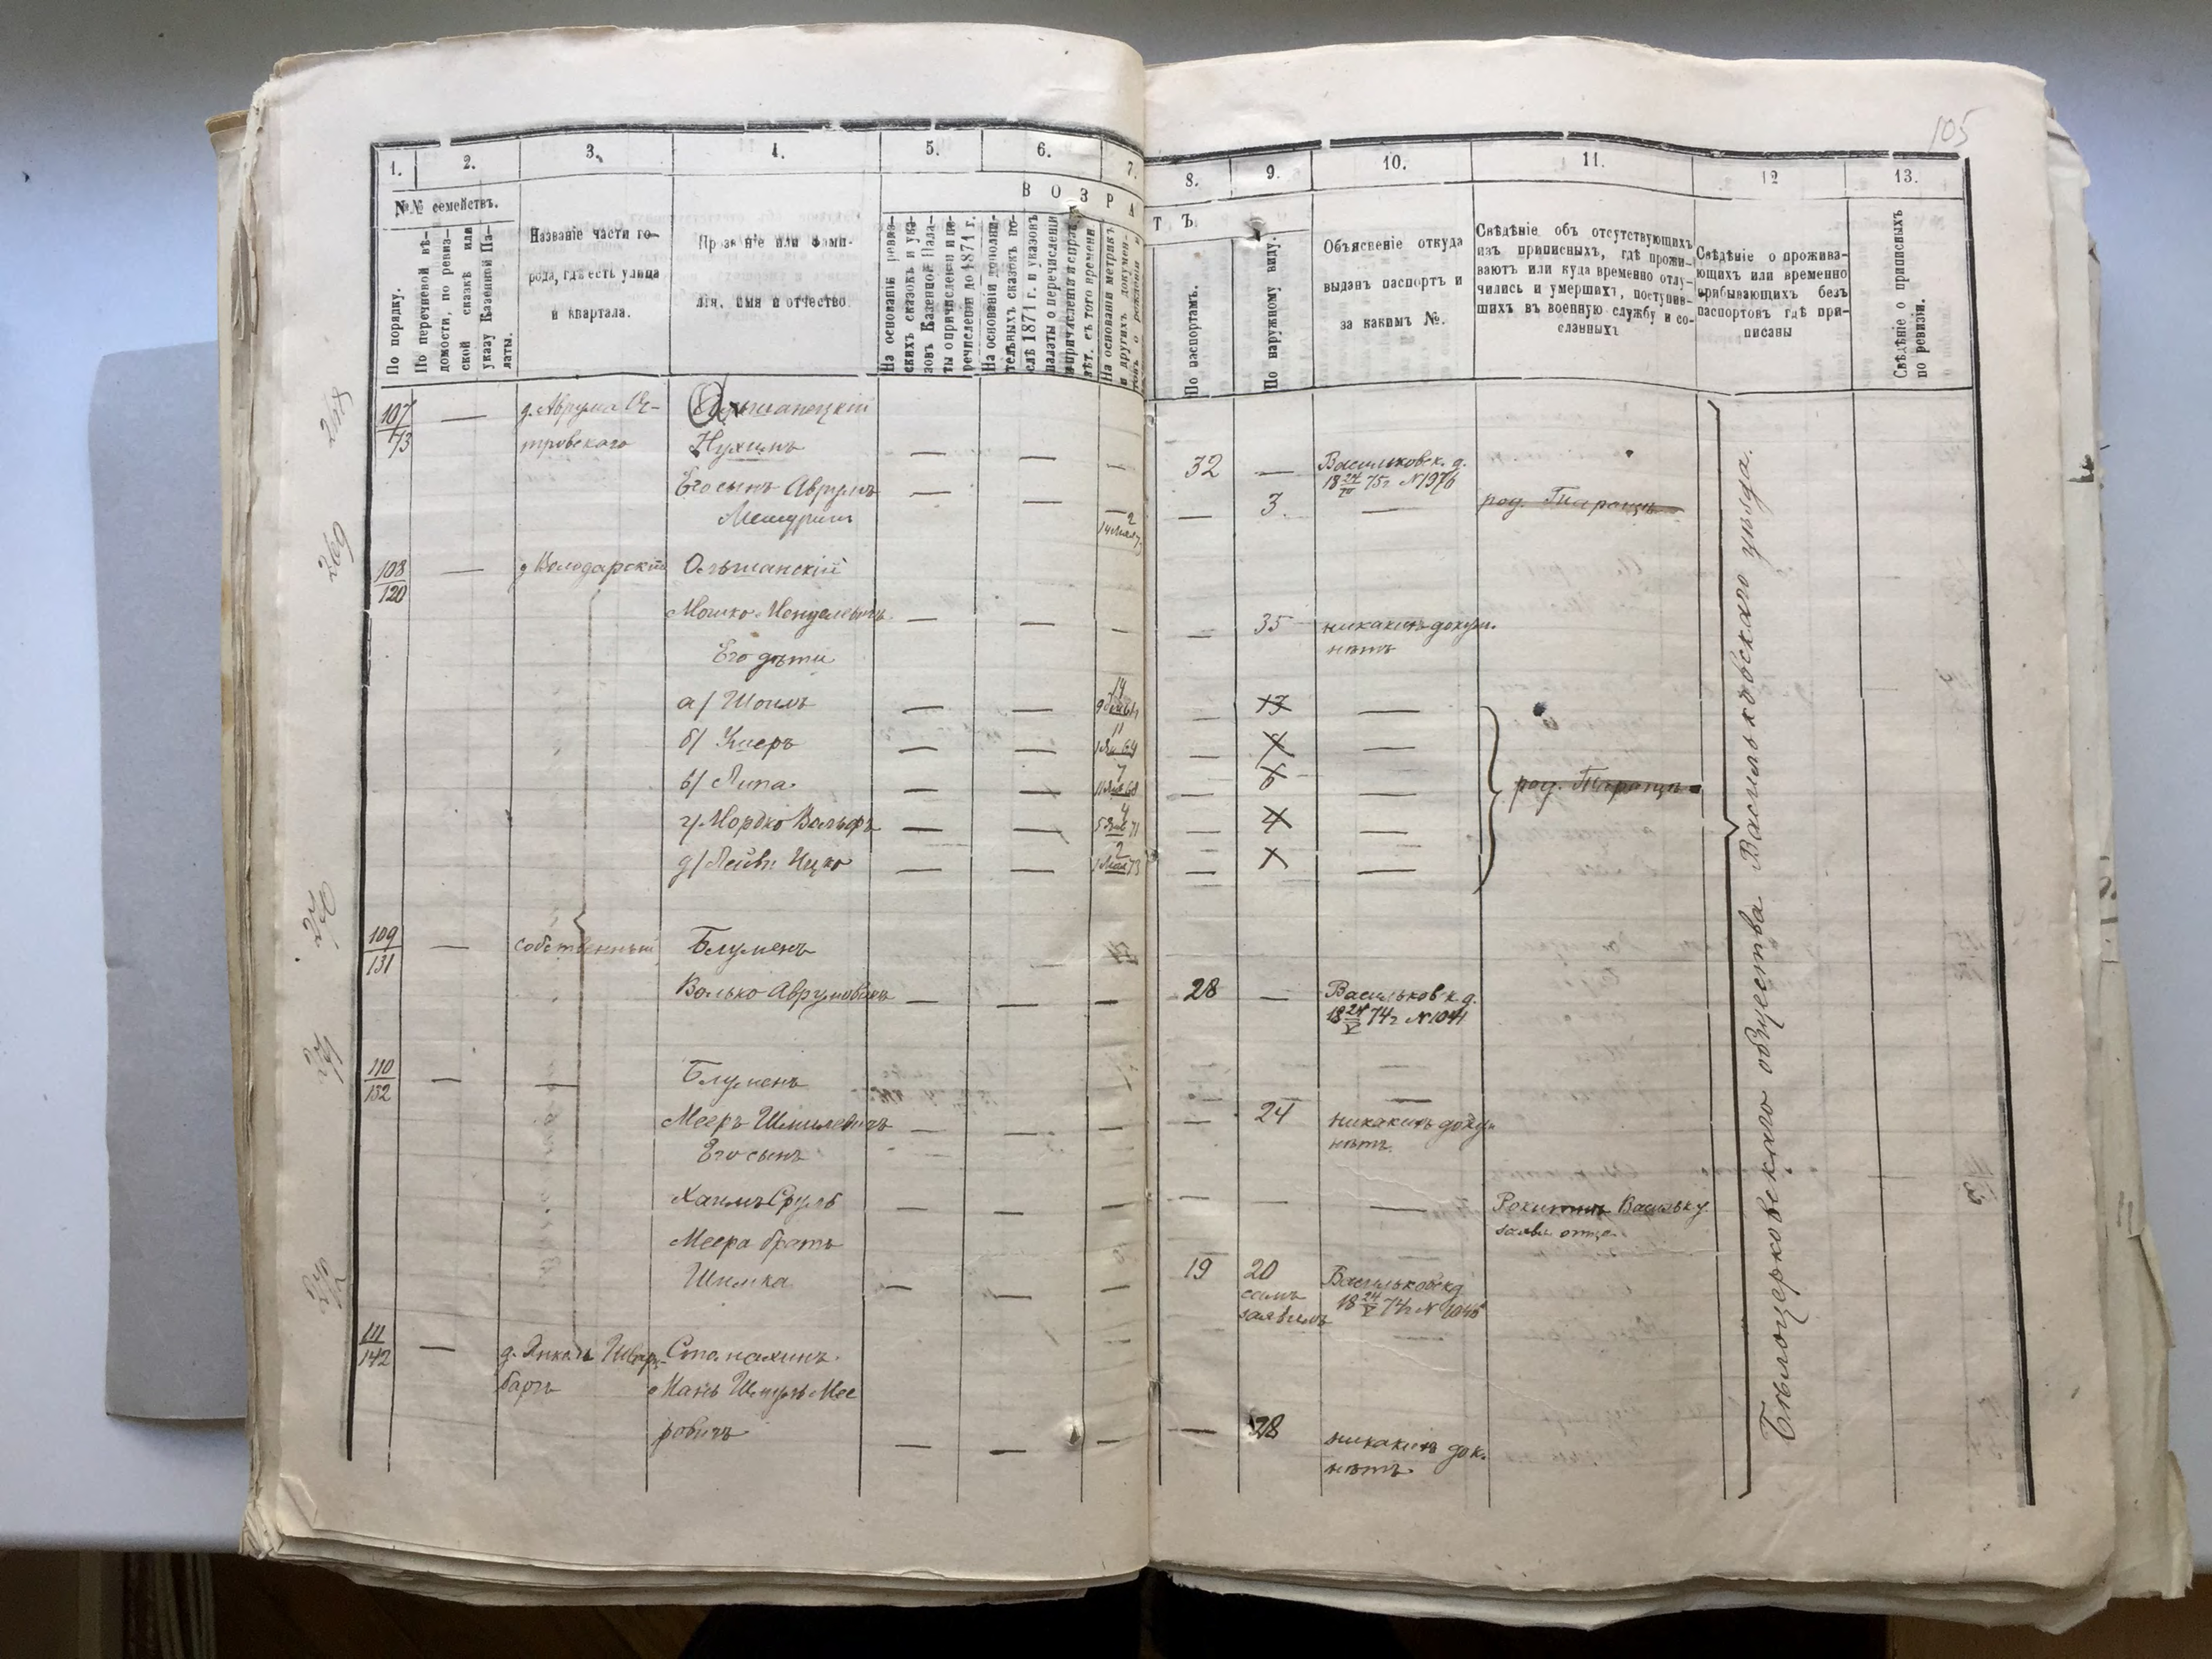 105
1.
2.
3.
4.
5.
6.
7.
8.
9.
10.
11.
12
13.
№№ семействъ.
В О З Р А
Т Ъ
По порядку.
По перечневой вѣ-
домости, по ревиз-
ской сказкѣ или
указу Казенной Па-
латы.
Названіе части го-
рода, гдѣ есть улица
и квартала.
Прозваніе или фами-
лія, имя и отчество.
На основаніи ревиз-
скихъ сказокъ и ука-
зовъ Казенной Пала-
ты о причисленіи и пе-
речисленіи до 1871 г.
На основаніи дополни-
тельныхъ сказокъ по-
слѣ 1871 г. и указовъ
палаты о перечисленіи
и причисленіи
съ того времени
На основаніи метрикъ
и другихъ докумен-
товъ о рожденіи и
По паспортамъ.
По наружному виду.
Объясненіе откуда
выданъ паспортъ и
за какимъ №.
Свѣдѣніе объ отсутствующихъ
изъ приписныхъ, гдѣ прожи-
ваютъ или куда временно отлу-
чились и умершихъ, поступив-
шихъ въ военную службу и со-
сланныхъ
Свѣдѣніе о прожива-
ющихъ или временно
прибывающихъ безъ
паспортовъ гдѣ при-
писаны
Свѣдѣніе о приписныхъ
по ревизіи.
107
73
д. Аврума Ос-
тровского
Ольшанецкій
Нухимъ
32
Васильковск. д.
18 24 75г №1976
Его сынъ Аврумъ
2
3.
108
120
д Володарскій
Ольшанскій
Мошко Менделевичъ
35
никакихъ докум.
нѣтъ
Его дѣти
а/ Шоилъ
14
13
б/ Умеръ
11
в/ Липа
7
6
г/ Мордко Вольфъ
4
4
д/ Лейб. Ицко
2
109
131
собственный
Блуменъ
Волько Аврумовичъ
28
Васильковск д.
18 24 V 74г №1041
110
132
Блуменъ
Мееръ Шмилевичъ
24
никакихъ докум
нѣтъ.
Его сынъ
Хаимъ Сруль
Васильку
заяви отца.
Меера братъ
Шимка
19
20
самъ
заявилъ
Васильковск д
18 24 V 74г № 1046
111
142
д. Янкель Швар-
баргъ
Мань Шмуль Мее
ровичъ
28
никакихъ док.
нѣтъ.
Бѣлоцерковскаго общества Васильковскаго уѣзда.